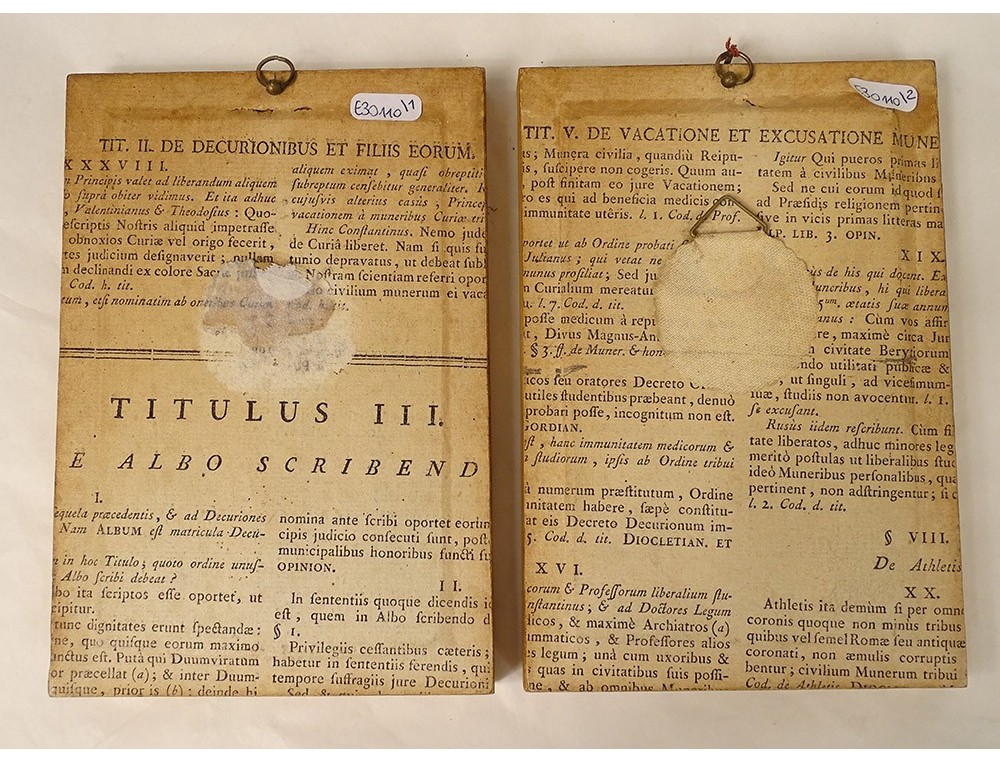 E30110\1
TIT. II. DE DECURIONIBUS ET FILIIS EORUM.
XXXVIII.
n Principis valet ad liberandum aliquem
o ſuprà obiter vidimus. Et ita adhuc
, Valentinianus & Theodoſius : Quo-
eſcriptis Noſtris aliquid impetraſſe
obnoxios Curiæ vel origo fecerit,
tes judicium deſignaverit ; nullam
n declinandi ex colore Sacræ
Cod. h. tit.
tum, etſi nominatim ab omnibus Curiæ
aliquem eximat, quaſi obreptiti
ſubreptum cenſebitur generaliter.
cujuſvis alterius casûs ; Princep
vacationem à muneribus Curiæ tri
Hinc Conſtantinus. Nemo jude
de Curiâ liberet. Nam ſi quis fu
tunio depravatus, ut debeat ſubl
Noſtram ſcientiam referri opor
civilium munerum ei vaca
Cod. h. tit.
TITULUS III.
E ALBO SCRIBEND
I.
equela præcedentis, & ad Decuriones
Nam ALBUM eſt matricula Decu-
n in hoc Titulo ; quoto ordine unuſ-
Albo ſcribi debeat ?
bo ita ſcriptos eſſe oportet, ut
ipitur.
tunc dignitates erunt ſpectandæ :
ne, quo quiſque eorum maximo
unctus eſt. Putà qui Duumviratum
or præcellat (a) ; & inter Duum-
quiſque, prior is (b) : deinde hi
nomina ante ſcribi oportet eorum
cipis judicio conſecuti ſunt, poſt
municipalibus honoribus functi ſu
OPINION.
II.
In ſententiis quoque dicendis i
eſt, quem in Albo ſcribendo d
§ 1.
Privilegiis ceſſantibus cæteris ;
habetur in ſententiis ferendis, qui
tempore ſuffragiis jure Decurioni
E30110\2
TIT. V. DE VACATIONE ET EXCUSATIONE MUNE
is ; Munera civilia, quandiù Reipu-
is, ſuſcipere non cogeris. Quum au-
, poſt finitam eo jure Vacationem ;
o es qui ad beneficia medicis con
immunitate utêris. l. 1. Cod. de Prof.
portet ut ab Ordine probati
Julianus ; qui vetat ne
munus proſiliat ; Sed ju
n Curialium mereatur
u. l. 7. Cod. d. tit.
poſſe medicum à repu
t, Divus Magnus-An
§ 3. ff. de Muner. & hon
icos ſeu oratores Decreto
utiles ſtudentibus præbeant, denuò
probari poſſe, incognitum non eſt.
GORDIAN.
eſt, hanc immunitatem medicorum &
n ſtudiorum, ipſis ab Ordine tribui
à numerum præſtitutum, Ordine
nitatem habere, ſæpè conſtitu-
at eis Decreto Decurionum im-
5. Cod. d. tit. DIOCLETIAN. ET
XVI.
corum & Profeſſorum liberalium ſtu-
nſtantinus ; & ad Doctores Legum
ficos, & maximè Archiatros (a)
mmaticos, & Profeſſores alios
s legum ; unà cum uxoribus &
; quas in civitatibus ſuis poſſi-
ne, & ab omnibus
Igitur Qui pueros primas li
tatem à civilibus Muneribus
Sed ne cui eorum id quod ſ
ad Præſidis religionem pertin
ſive in vicis primas litteras ma
LP. LIB. 3. OPIN.
XIX.
de his qui docent. Ex
muneribus, hi qui libera
5um. ætatis ſuæ annum
anus : Cùm vos affir
re, maximè circa Jur
n civitate Berytiorum
ndo utilitati publicæ &
, ut ſinguli, ad viceſimum-
tuæ, ſtudiis non avocentur. l. 1.
ſe excuſant.
Rusùs iidem reſcribunt. Cùm ſi
tate liberatos, adhuc minores leg
meritò poſtulas ut liberalibus ſtud
ideò Muneribus perſonalibus, quæ
pertinent, non adſtringentur ; ſi
l. 2. Cod. d. tit.
§ VIII.
De Athletis
XX.
Athletis ità demùm ſi per omne
coronis quoque non minùs tribus
quibus vel ſemel Romæ ſeu antiquæ
coronati, non æmulis corruptis
bentur ; civilium Munerum tribui
Cod. de Athletis